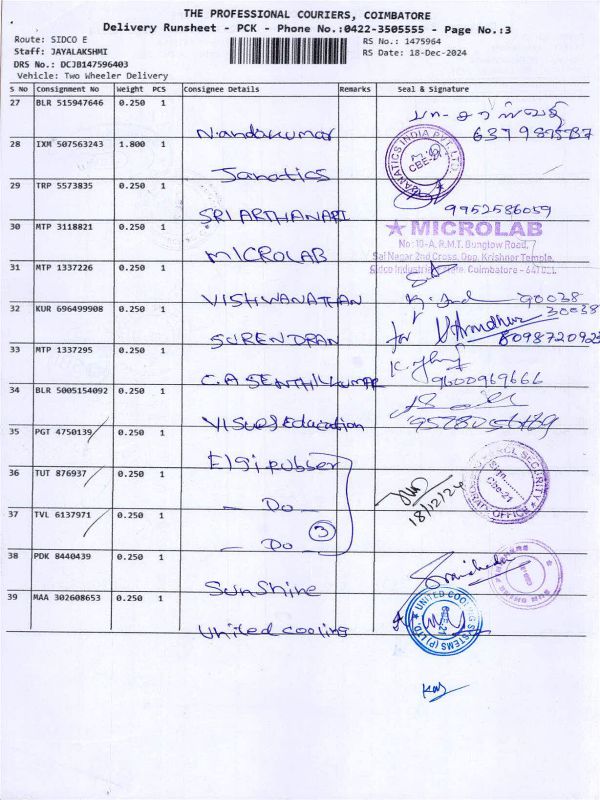 THE PROFESSIONAL COURIERS, COIMBATORE
Delivery Runsheet - PCK - Phone No.:0422-3505555 - Page No.:3
Route: SIDCO E
RS No.: 1475964
Staff: JAYALAKSHMI
RS Date: 18-Dec-2024
DRS No.: DCJB147596403
Vehicle: Two Wheeler Delivery
S No Consignment No Weight PCS Consignee Details Remarks Seal & Signature
27 BLR 515947646 0.250 1 Nandakumar
28 IXM 507563243 1.800 1 Janatics
JANATICS INDIA PVT. LTD.
CBE-21
29 TRP 5573835 0.250 1 SRI ARTHANARI 9952586059
30 MTP 3118821 0.250 1 MICROLAB
MICROLAB
No: 10-A, R.M.T. Bunglow Road,
Sai Nagar 2nd Cross, Opp. Krishner Temple,
Sidco Industrial Estate, Coimbatore - 641021.
31 MTP 1337226 0.250 1 VISHWANATHAN
32 KUR 696499908 0.250 1 SURENDRAN for
33 MTP 1337295 0.250 1 C.A SENTHILKUMAR 9600969666
34 BLR 5005154092 0.250 1 Visuel Education
35 PGT 4750139 0.250 1 Elgi rubber
36 TUT 876937 0.250 1 - Do - 18/12/24
SECURITY
CBE-21
37 TVL 6137971 0.250 1 - Do - 3
38 PDK 8440439 0.250 1 Sunshine
39 MAA 302608653 0.250 1 United cooling
UNITED COOLING SYSTEMS (P) LTD.
CBE-21